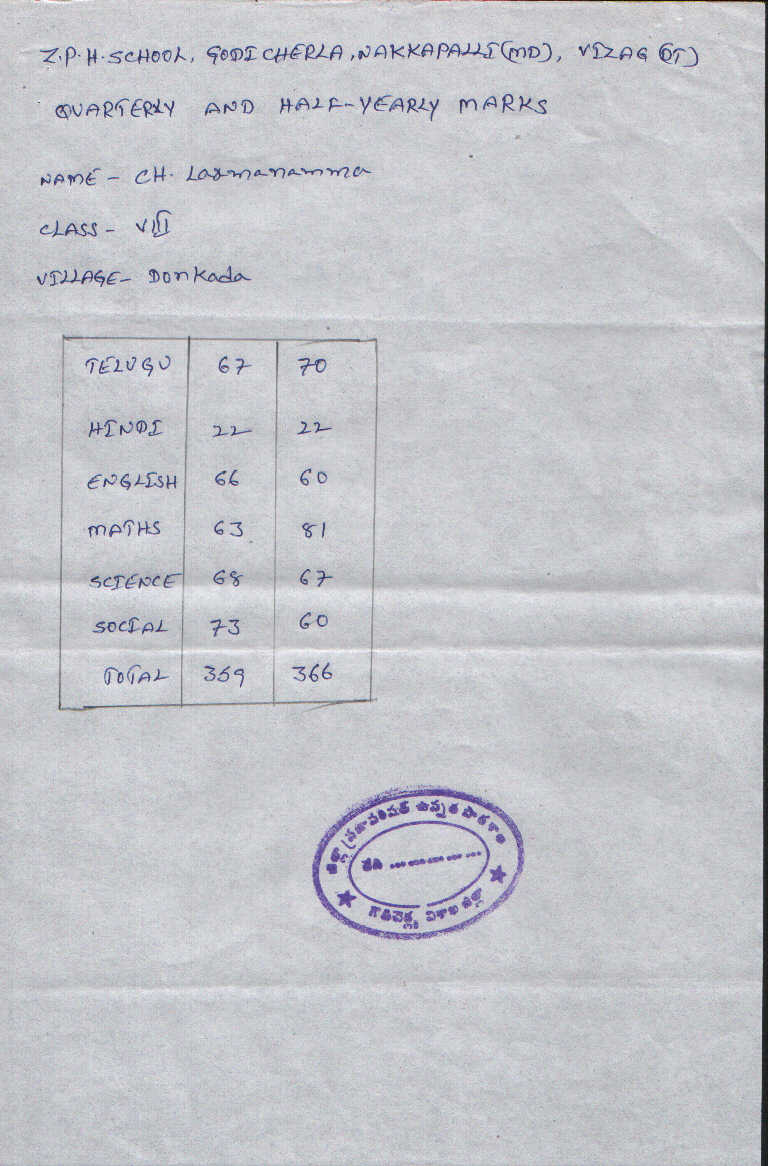 Z.P.H. SCHOOL, GODICHERLA, NAKKAPALLI(MD), VIZAG (DT)
QUARTERLY AND HALF-YEARLY MARKS
NAME - CH. Laxmanamma
CLASS - VIII
VILLAGE - Donkada
TELUGU 67 70
HINDI 22 22
ENGLISH 66 60
MATHS 63 81
SCIENCE 68 67
SOCIAL 73 60
TOTAL 359 366
జిల్లా ప్రజాపరిషత్ ఉన్నత పాఠశాల
తేది ...............
గొడిచెర్ల, విశాఖ జిల్లా